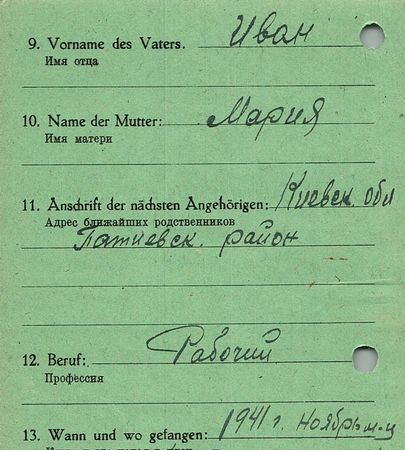 9. Vorname des Vaters. Иван
Имя отца
10. Name der Mutter: Мария
Имя матери
11. Anschrift der nächsten Angehörigen: Киевск. обл
Адрес ближайших родственников
район
12. Beruf: Рабочий
Профессия
13. Wann und wo gefangen: 1941 г. Ноябрь м-ц